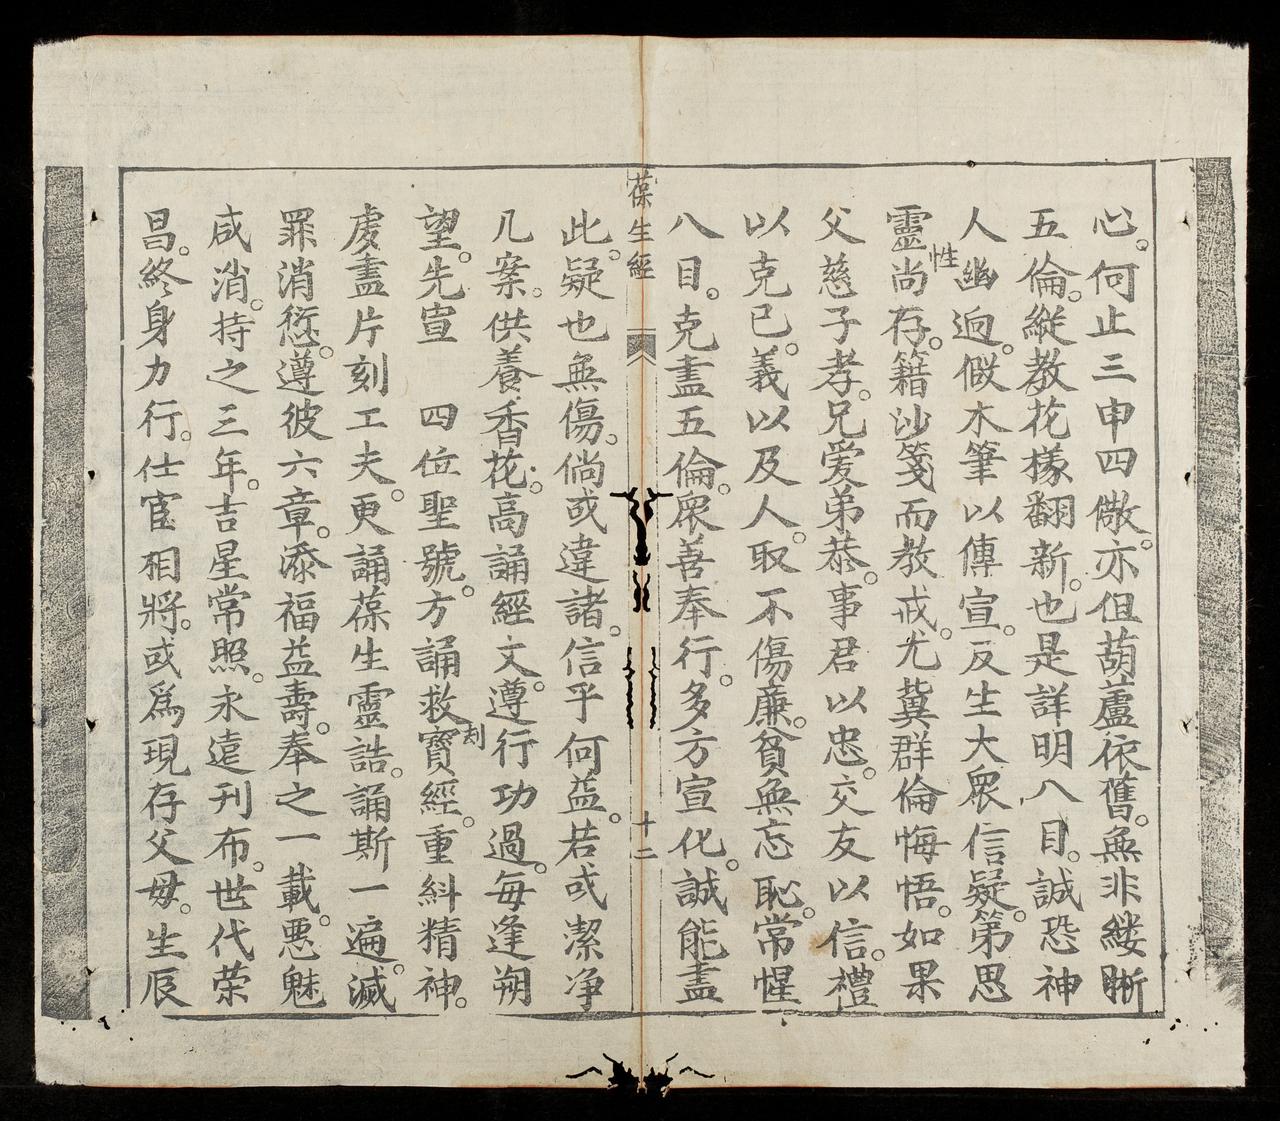 心。何止三申四儆。亦但葫蘆依舊。無非縷晰
五倫。縱教花樣翻新。也是詳明八目。誠恐神
人幽迥。假木筆以傳宣。反生大衆信疑。第思
靈性尚存。籍沙箋而教戒。尤冀群倫悔悟。如果
父慈子孝。兄爱弟恭。事君以忠。交友以信。禮
以克己。義以及人。取不傷廉。貧無忘恥。常惺
八目。克盡五倫。衆善奉行。多方宣化。誠能盡
葆生經
十二
此。疑也無傷。倘或違諸。信乎何益。若或潔净
几案。供養香花。高誦經文。遵行功過。每逢朔
望。先宣 四位聖號。方誦救刼寶經。重糾精神。
虔盡片刻工夫。更誦葆生靈誥。誦斯一遍。滅
罪消愆。遵彼六章。添福益壽。奉之一載。悪魅
咸消。持之三年。吉星常照。永遠刊布。世代荣
昌。終身力行。仕宦相將。或爲現存父毋。生辰